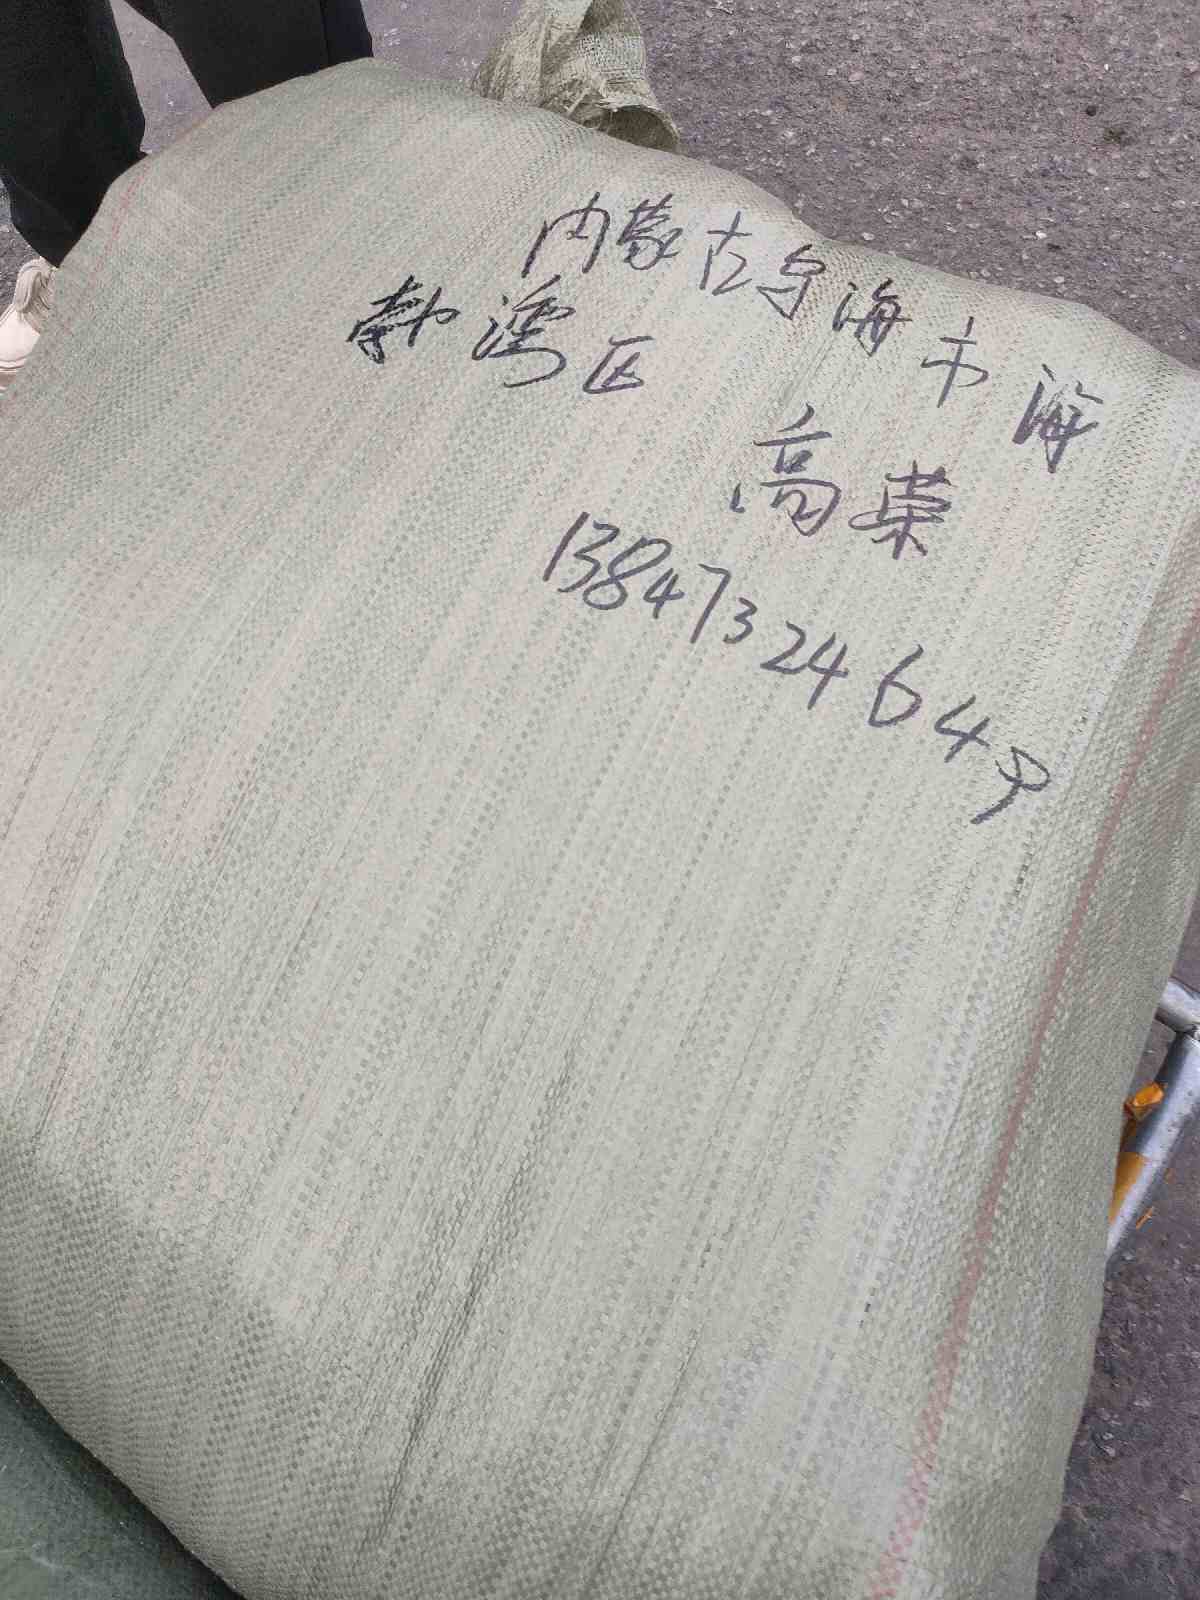 内蒙古乌海市海
勃湾区
高荣
13847324649